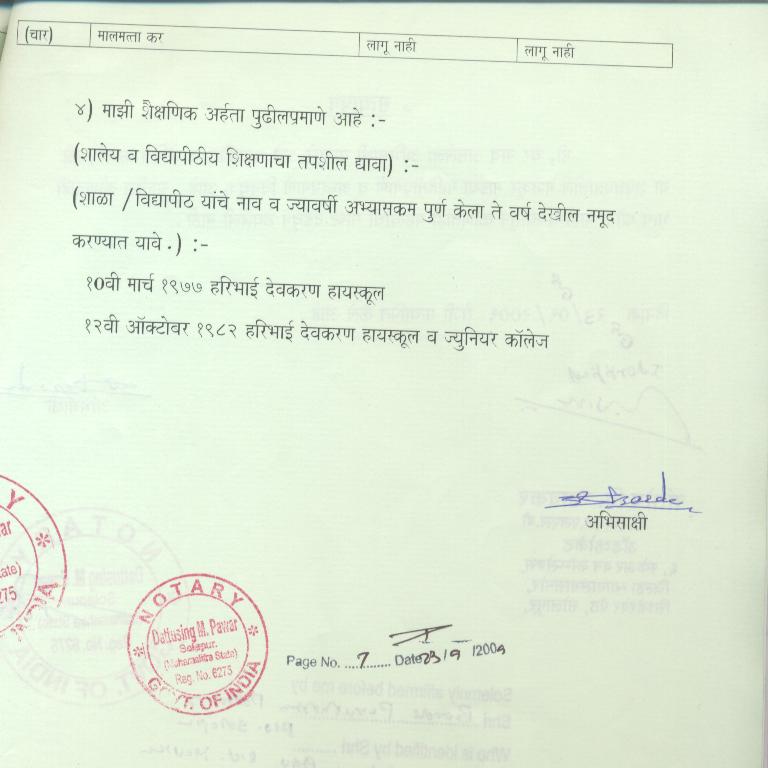 (चार) मालमत्ता कर लागू नाही लागू नाही
४) माझी शैक्षणिक अर्हता पुढीलप्रमाणे आहे :-
(शालेय व विद्यापीठीय शिक्षणाचा तपशील द्यावा) :-
(शाळा /विद्यापीठ यांचे नाव व ज्यावर्षी अभ्यासकम पुर्ण केला ते वर्ष देखील नमूद
करण्यात यावे.) :-
१0वी मार्च १९७७ हरिभाई देवकरण हायस्कूल
१२वी ऑक्टोवर १९८२ हरिभाई देवकरण हायस्कूल व ज्युनियर कॉलेज
अभिसाक्षी
NOTARY
Dattusing M. Pawar
Solapur.
(Maharashtra State)
Reg. No. 6275
GOVT. OF INDIA
Page No. ....7...... Date 23/9 /2009